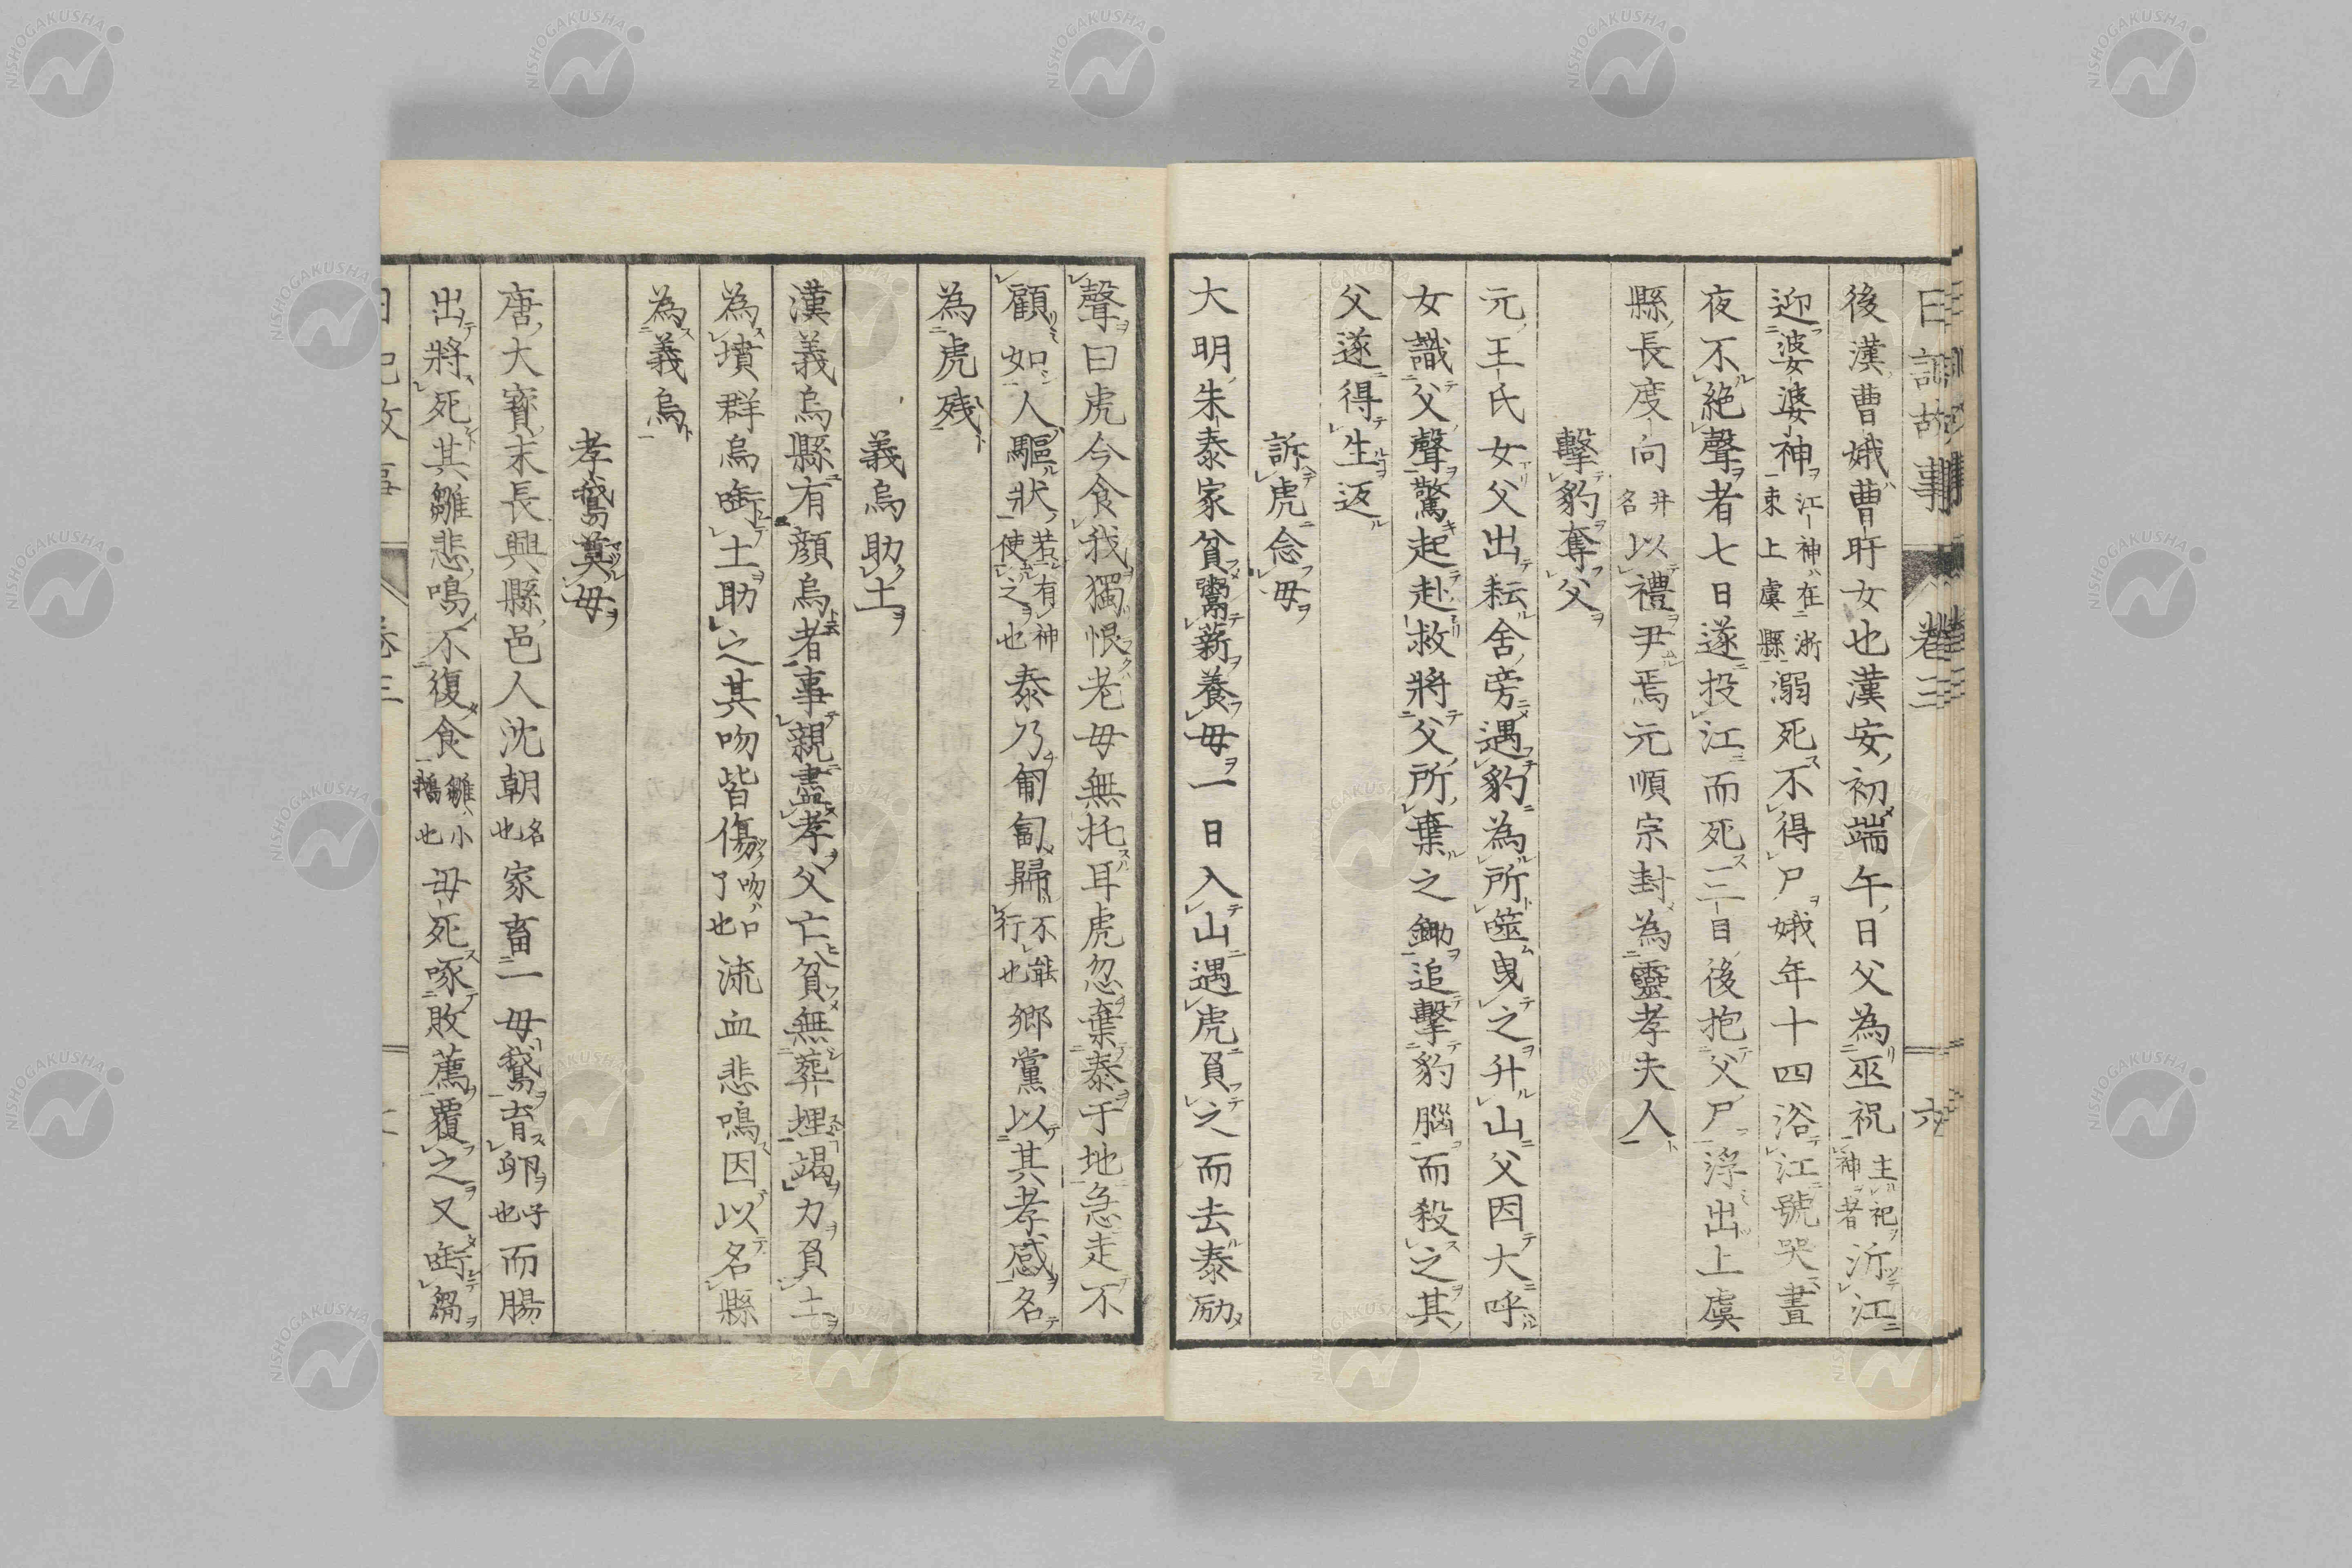 日記故事 卷三 六
後漢曹娥曹旴女也漢安初端午日父為巫祝主祀神者沂江
迎婆婆神江神在浙東上虞縣溺死不得尸娥年十四沿江號哭晝
夜不絶聲者七日遂投江而死二日後抱父尸浮出上虞
縣長度向并名以禮尹焉元順宗封為靈孝夫人
擊豹奪父
元王氏女父出耘舍旁遇豹為所噬曳之升山父因大呼
女識父聲驚起赴救將父所棄之鋤追擊豹腦而殺之其
父遂得生返
訴虎念母
大明朱泰家貧鬻薪養母一日入山遇虎負之而去泰励
聲曰虎今食我獨恨老母無托耳虎忽棄泰于地急走不
顧如人驅狀若有神使之也泰乃匍匐歸不能行也鄉黨以其孝感名
為虎残
義烏助土
漢義烏縣有顔烏者事親盡孝父亡貧無葬埋竭力負土
為墳群烏啣土助之其吻皆傷吻口了也流血悲鳴因以名縣
為義烏
孝鵞奠母
唐大寳末長興縣邑人沈朝名也家畜一母鵞育卵子也而腸
出將死其雛悲鳴不復食雛小鵞也母死啄敗薦覆之又啣芻
日記故事 卷三
NISHOGAKUSHA